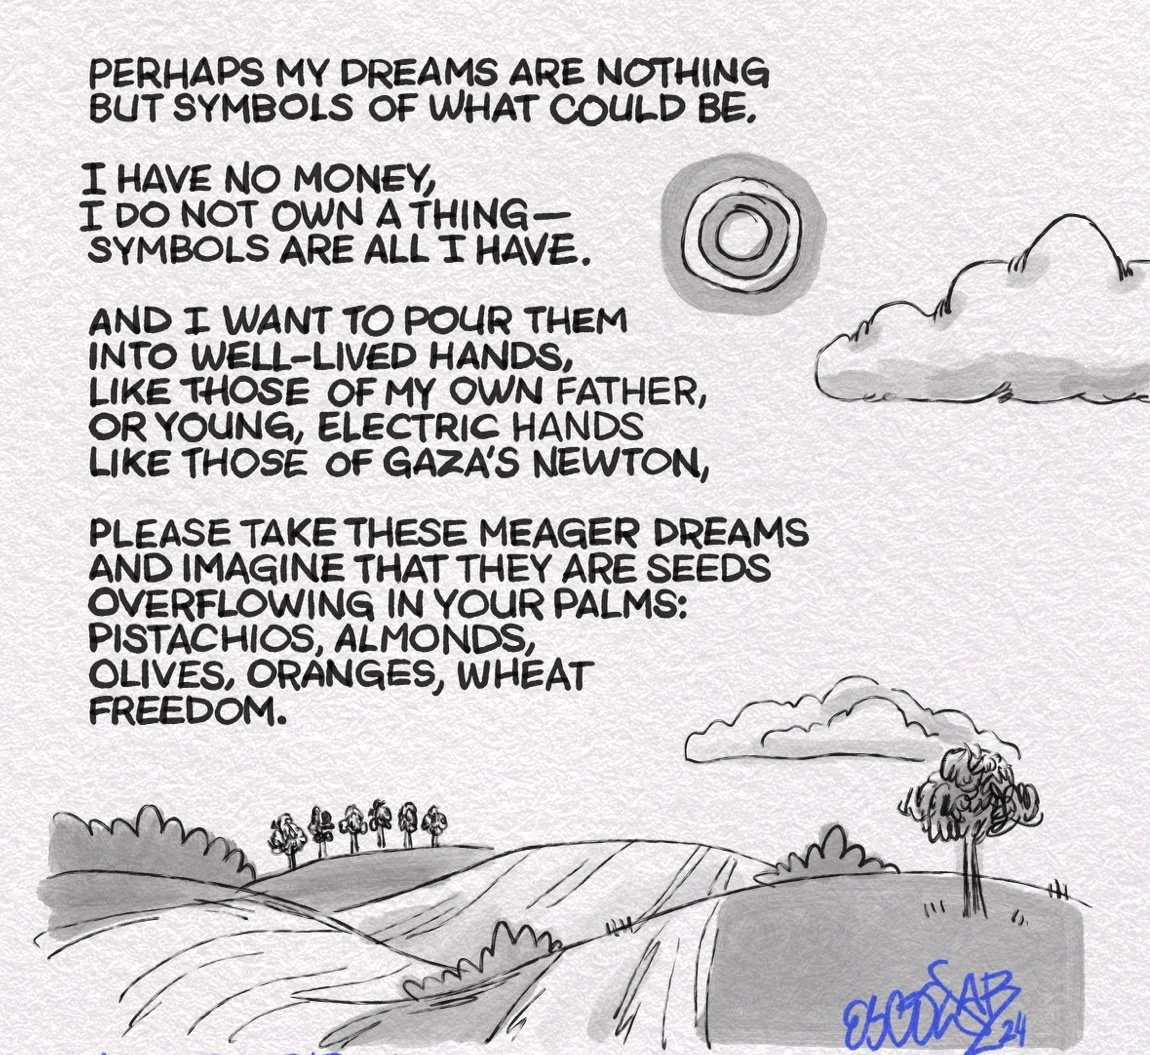 PERHAPS MY DREAMS ARE NOTHING
BUT SYMBOLS OF WHAT COULD BE.
I HAVE NO MONEY,
I DO NOT OWN A THING—
SYMBOLS ARE ALL I HAVE.
AND I WANT TO POUR THEM
INTO WELL-LIVED HANDS,
LIKE THOSE OF MY OWN FATHER,
OR YOUNG, ELECTRIC HANDS
LIKE THOSE OF GAZA'S NEWTON,
PLEASE TAKE THESE MEAGER DREAMS
AND IMAGINE THAT THEY ARE SEEDS
OVERFLOWING IN YOUR PALMS:
PISTACHIOS, ALMONDS,
OLIVES, ORANGES, WHEAT
FREEDOM.
24